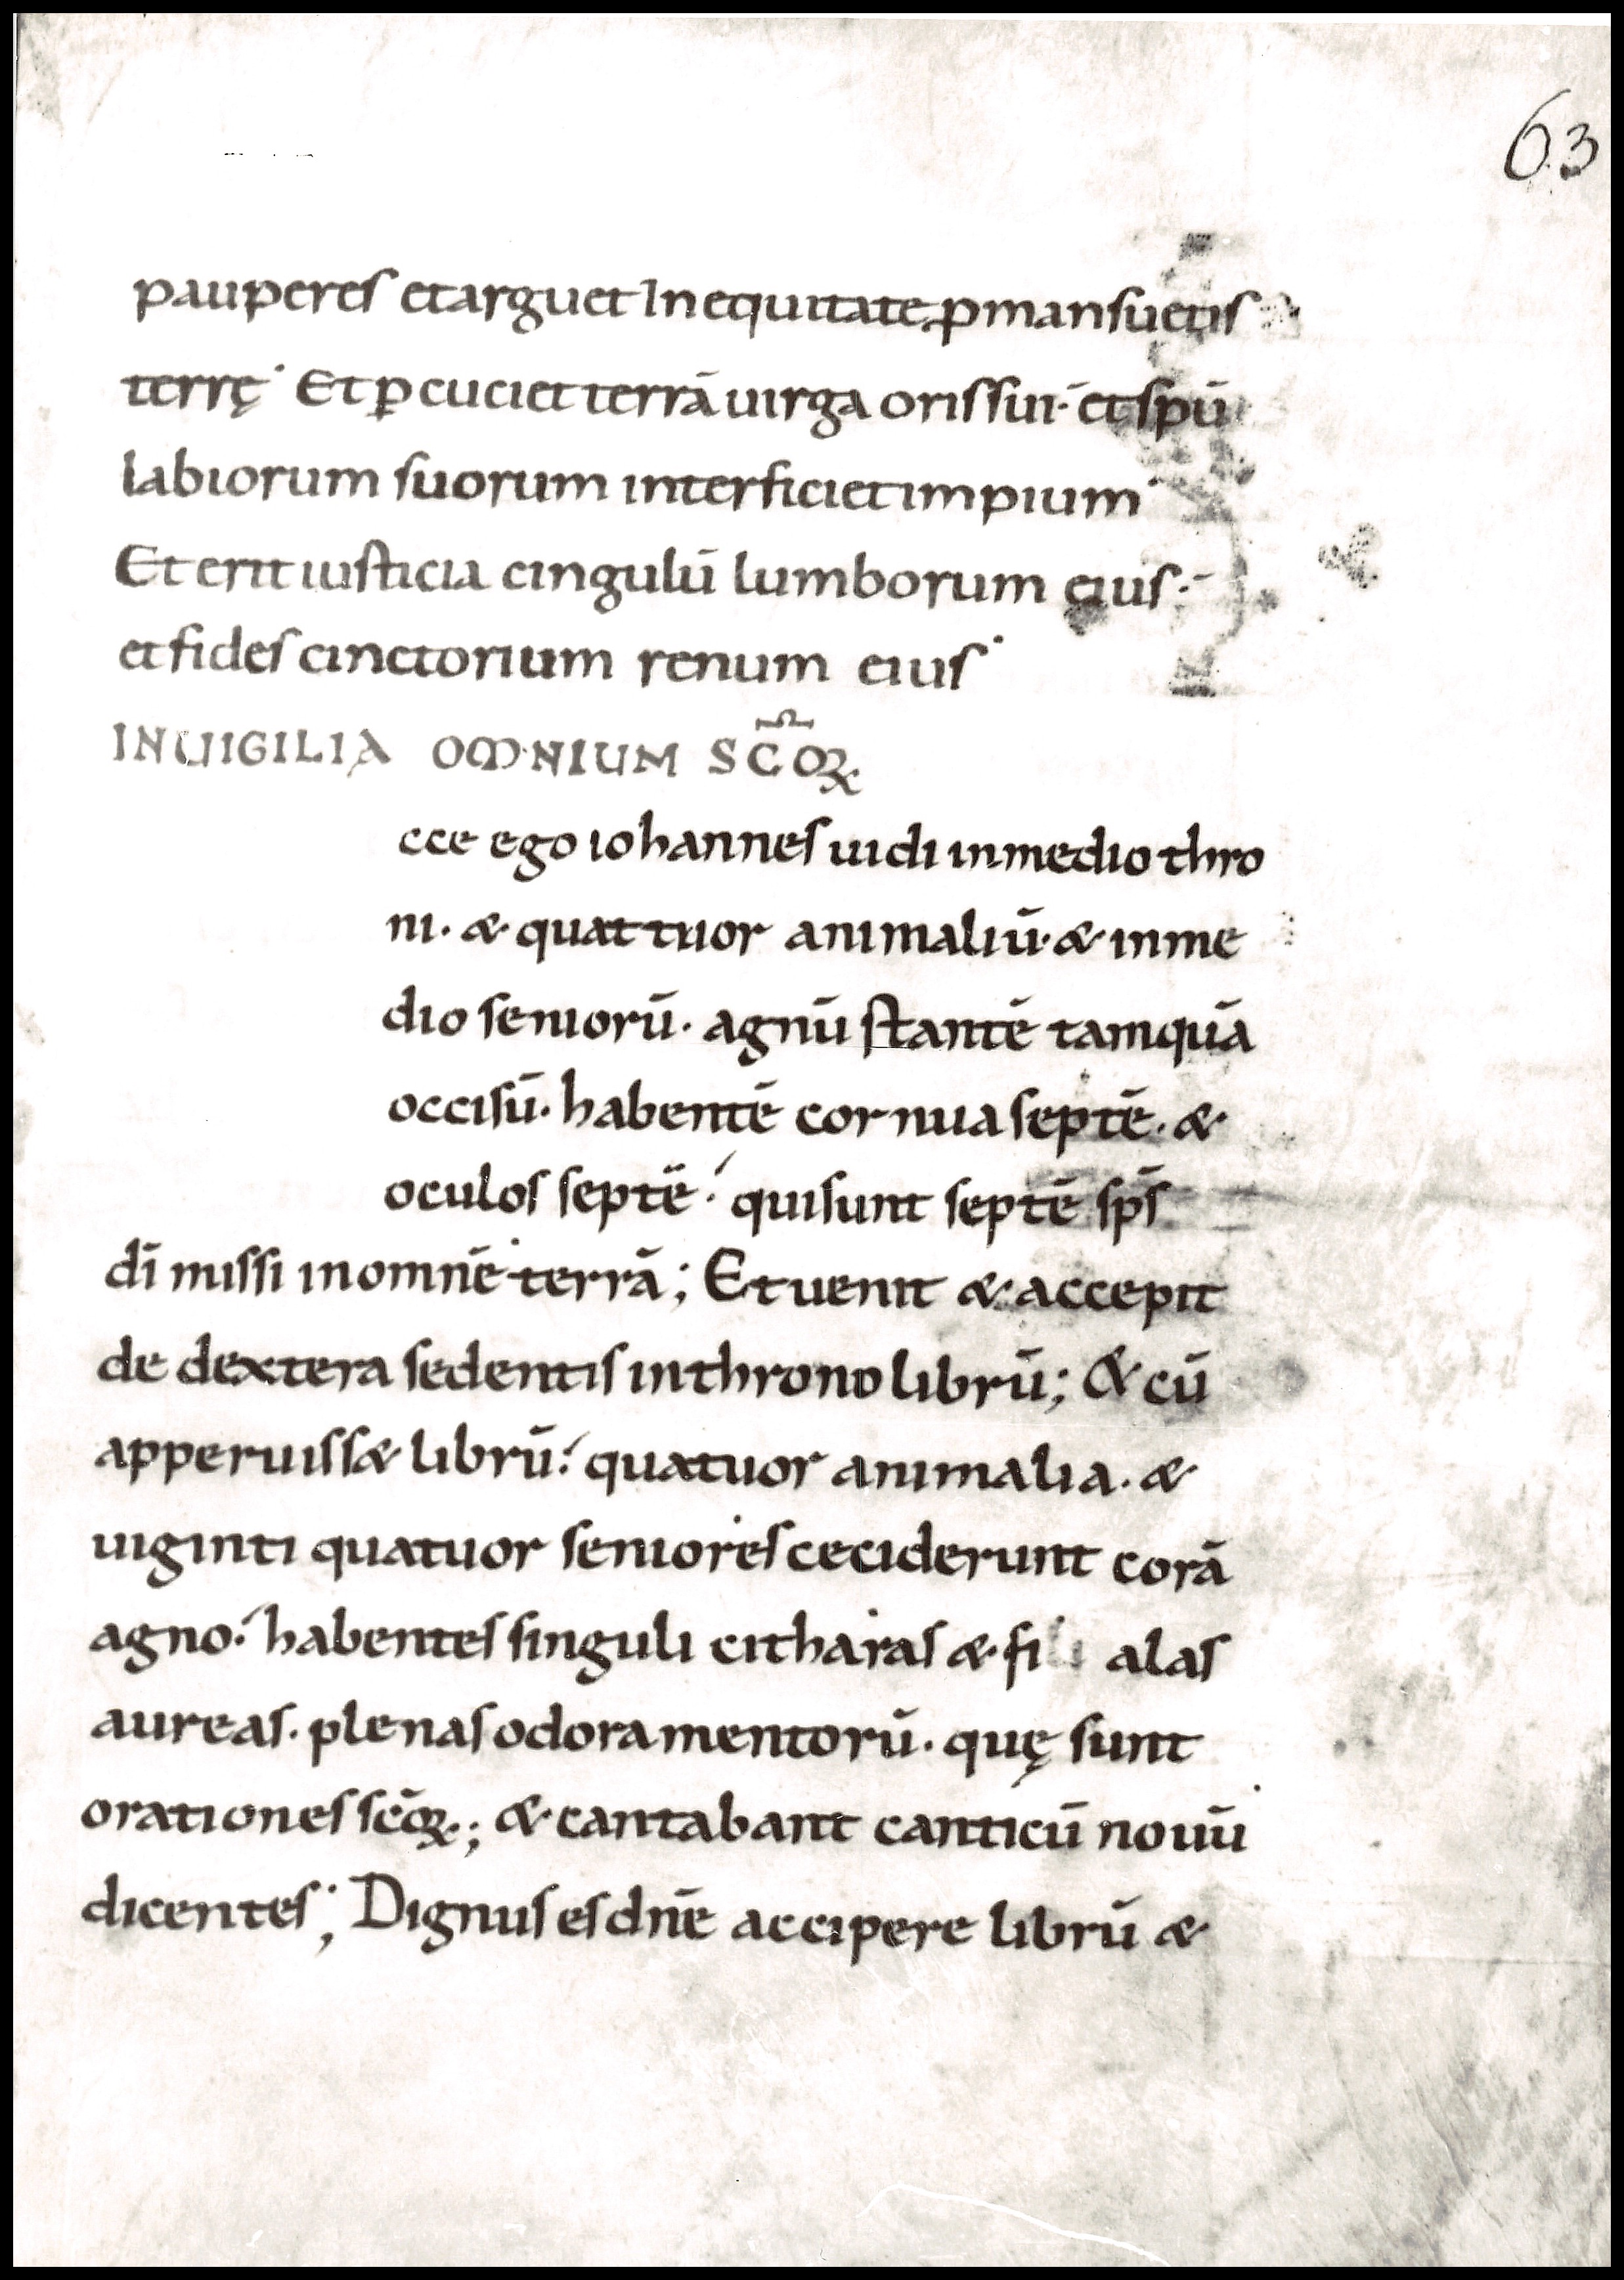 63
pauperes et arguet In equitate ꝓ mansuetis
terrę· Et ꝑcuciet terrā uirga oris sui· et spū
labiorum suorum interficiet impium·
Et erit iusticia cingulū lumborum eius·
et fides cinctorium renum eius·
IN UIGILIA OMNIUM SC̄OꝜ
cce ego iohannes uidi in medio thro
ni· & quattuor animaliū· & in me
dio seniorū· agnū stantē tamquā
occisū· habentē cornua septē· &
oculos septē· qui sunt septē sps̄
dī missi in omnē terrā; Et uenit & accepit
de dextera sedentis in throno librū; & cū
apperuiss& librū· quatuor animalia· &
uiginti quatuor seniores ceciderunt corā
agno· habentes singuli citharas & fi alas
aureas· plenas odoramentorū· quę sunt
orationes sc̄oꝝ; & cantabant canticū nouū
dicentes; Dignus es dn̄e accipere librū &